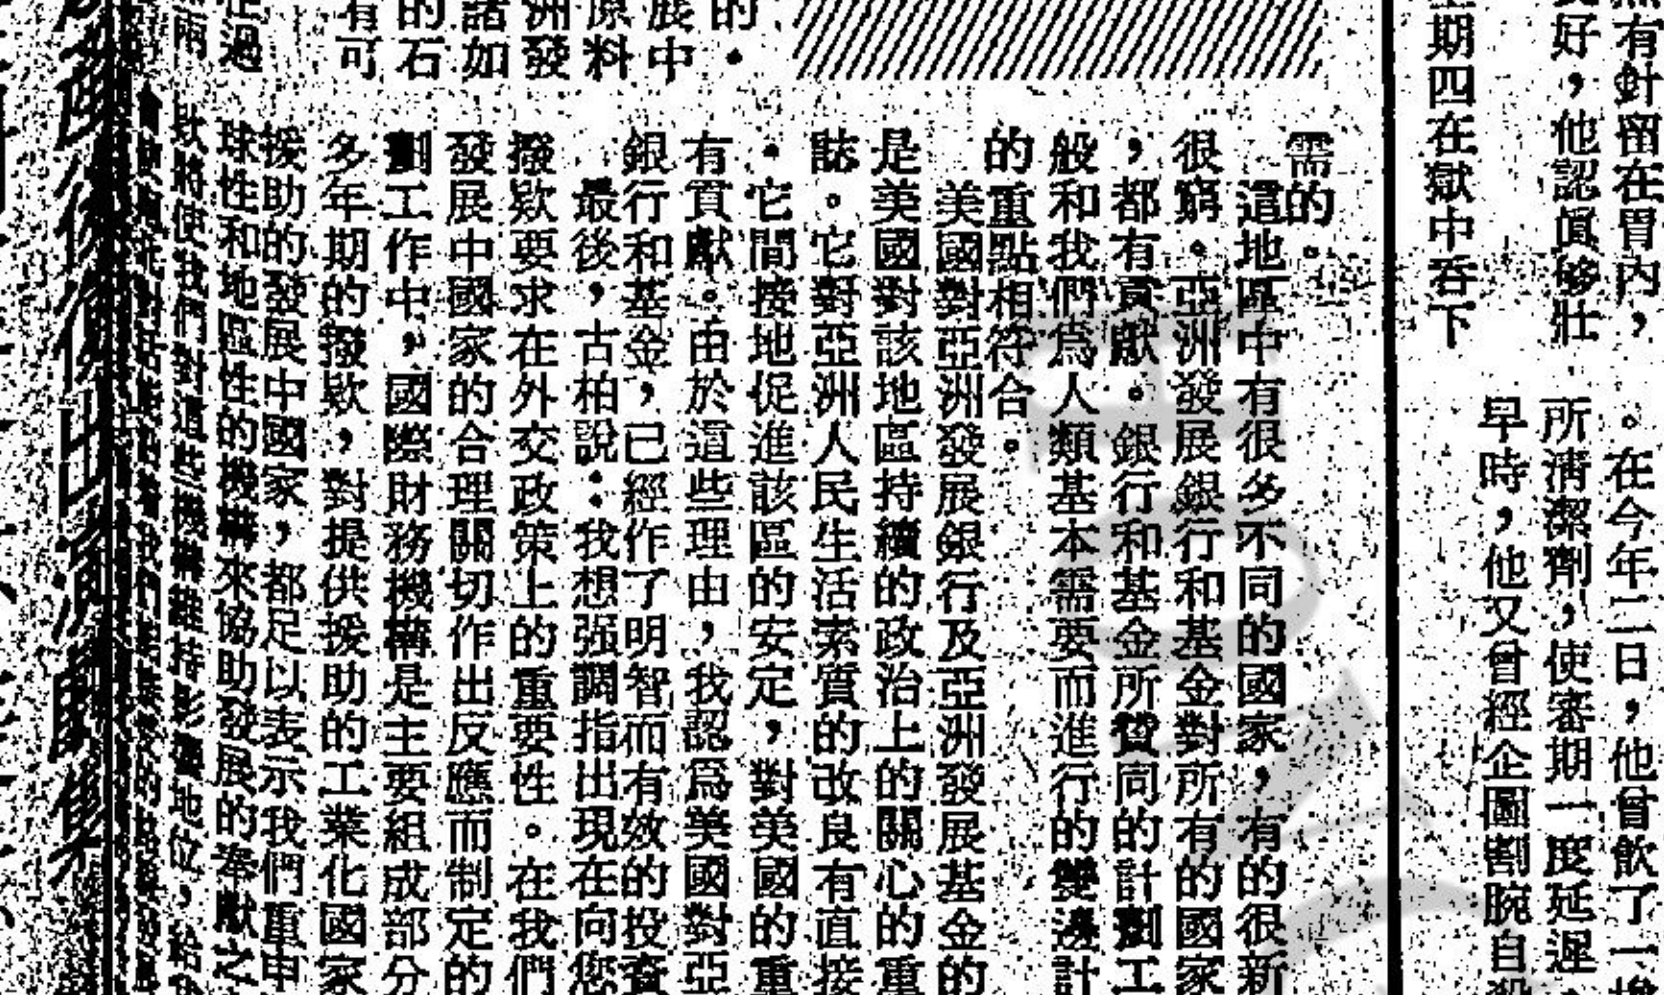 然有針留在胃內，
好，他認眞够壯
期四在獄中吞下
。在今年二日，他曾飲了一
所淸潔劑，使審期一度延遲
早時，他又曾經企圖割腕自殺
的．
展中
原料
洲發
諸如
的石
有可
需的。
這地區中有很多不同的國家，有的很新
很窮。亞洲發展銀行和基金對所有的國家
，都有貢獻。銀行和基金所贊同的計劃工
般和我們爲人類基本需要而進行的變遷計
的重點相符合。
美國對亞洲發展銀行及亞洲發展基金的
是美國對該地區持續的政治上的關心的重
誌。它對亞洲人民生活素質的改良有直接
．它間接地促進該區的安定，對美國的重
有貢獻。由於這些理由，我認爲美國對亞
銀行和基金，已經作了明智而有效的投資
最後，古柏說：我想强調指出現在向您
撥欵要求在外交政策上的重要性。在我們
發展中國家的合理關切作出反應而制定的
劃工作中，國際財務機構是主要組成部分
多年期的撥欵，對提供援助的工業化國家
援助的發展中國家，都足以表示我們重申
球性和地區性的機構來協助發展的奉獻之
欵將使我們對這些機構維持影響地位，給